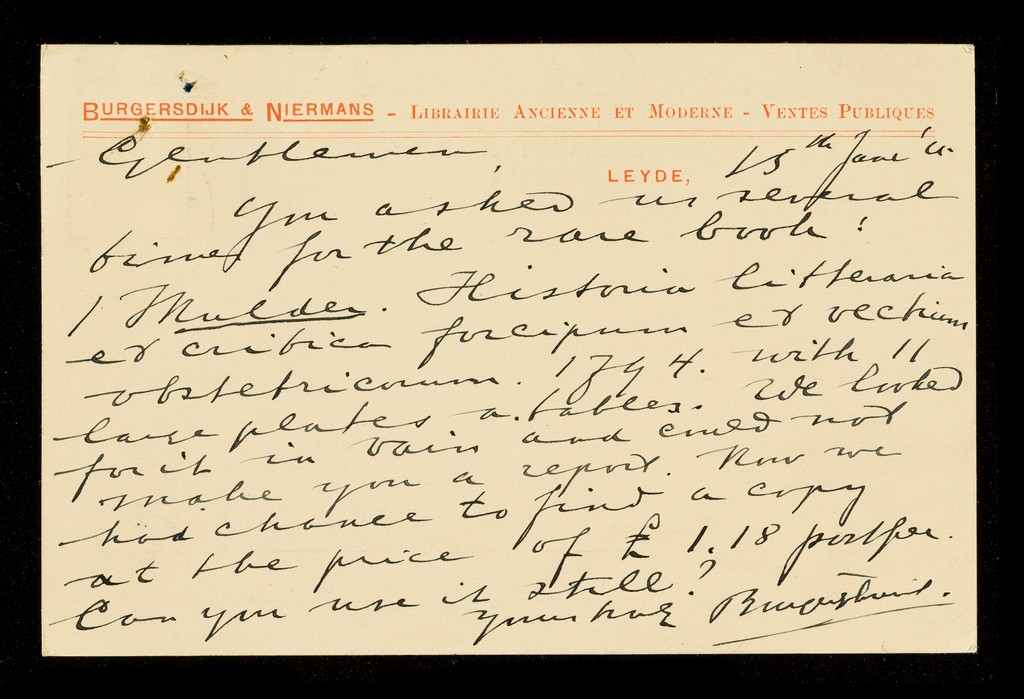 BURGERSDIJK & NIERMANS - LIBRAIRIE ANCIENNE ET MODERNE - VENTES PUBLIQUES
Gentlemen,
LEYDE, 15th June
You asked us several
times for the rare book:
1 Mulder. Historia litteraria
et critica forcipum et vectium
obstetricorum. 1794. with 11
large plates a. tables. We looked
for it in vain and could not
make you a report. Now we
had chance to find a copy
at the price of £ 1.18 postfee.
Can you use it still?
Yours truly